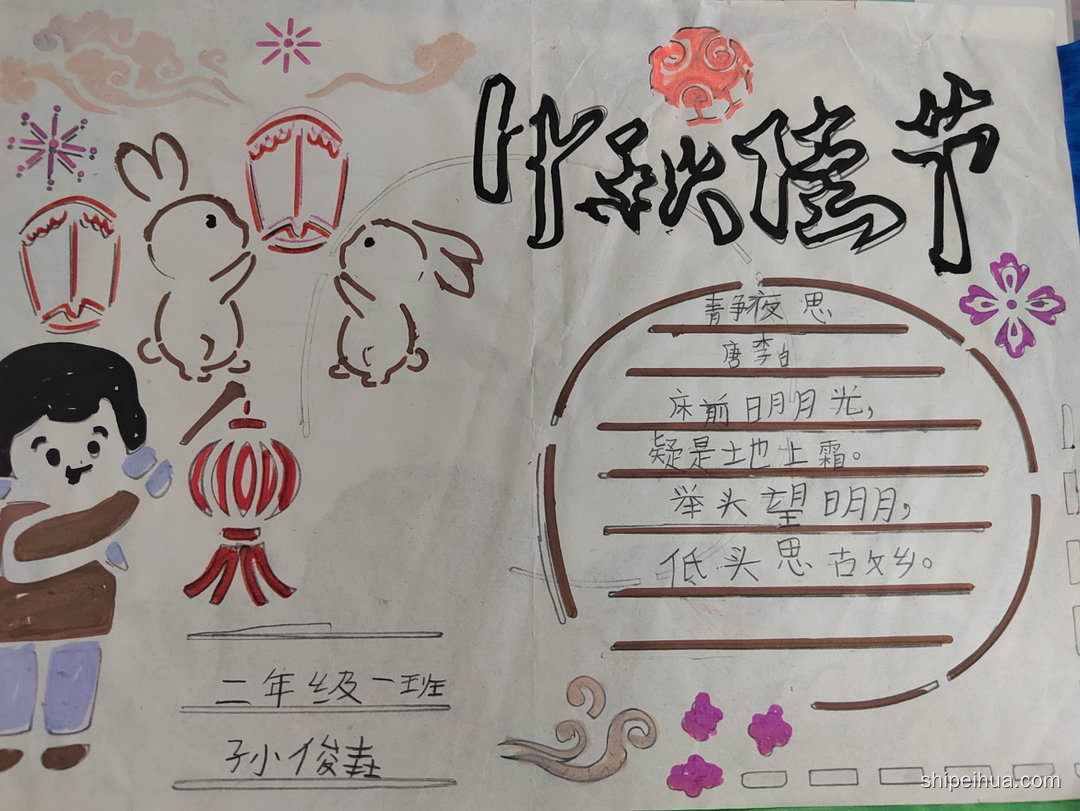 中秋佳节
静夜思
唐 李白
床前明月光，
疑是地上霜。
举头望明月，
低头思故乡。
二年级一班
孙俊垚
shipeihua.com